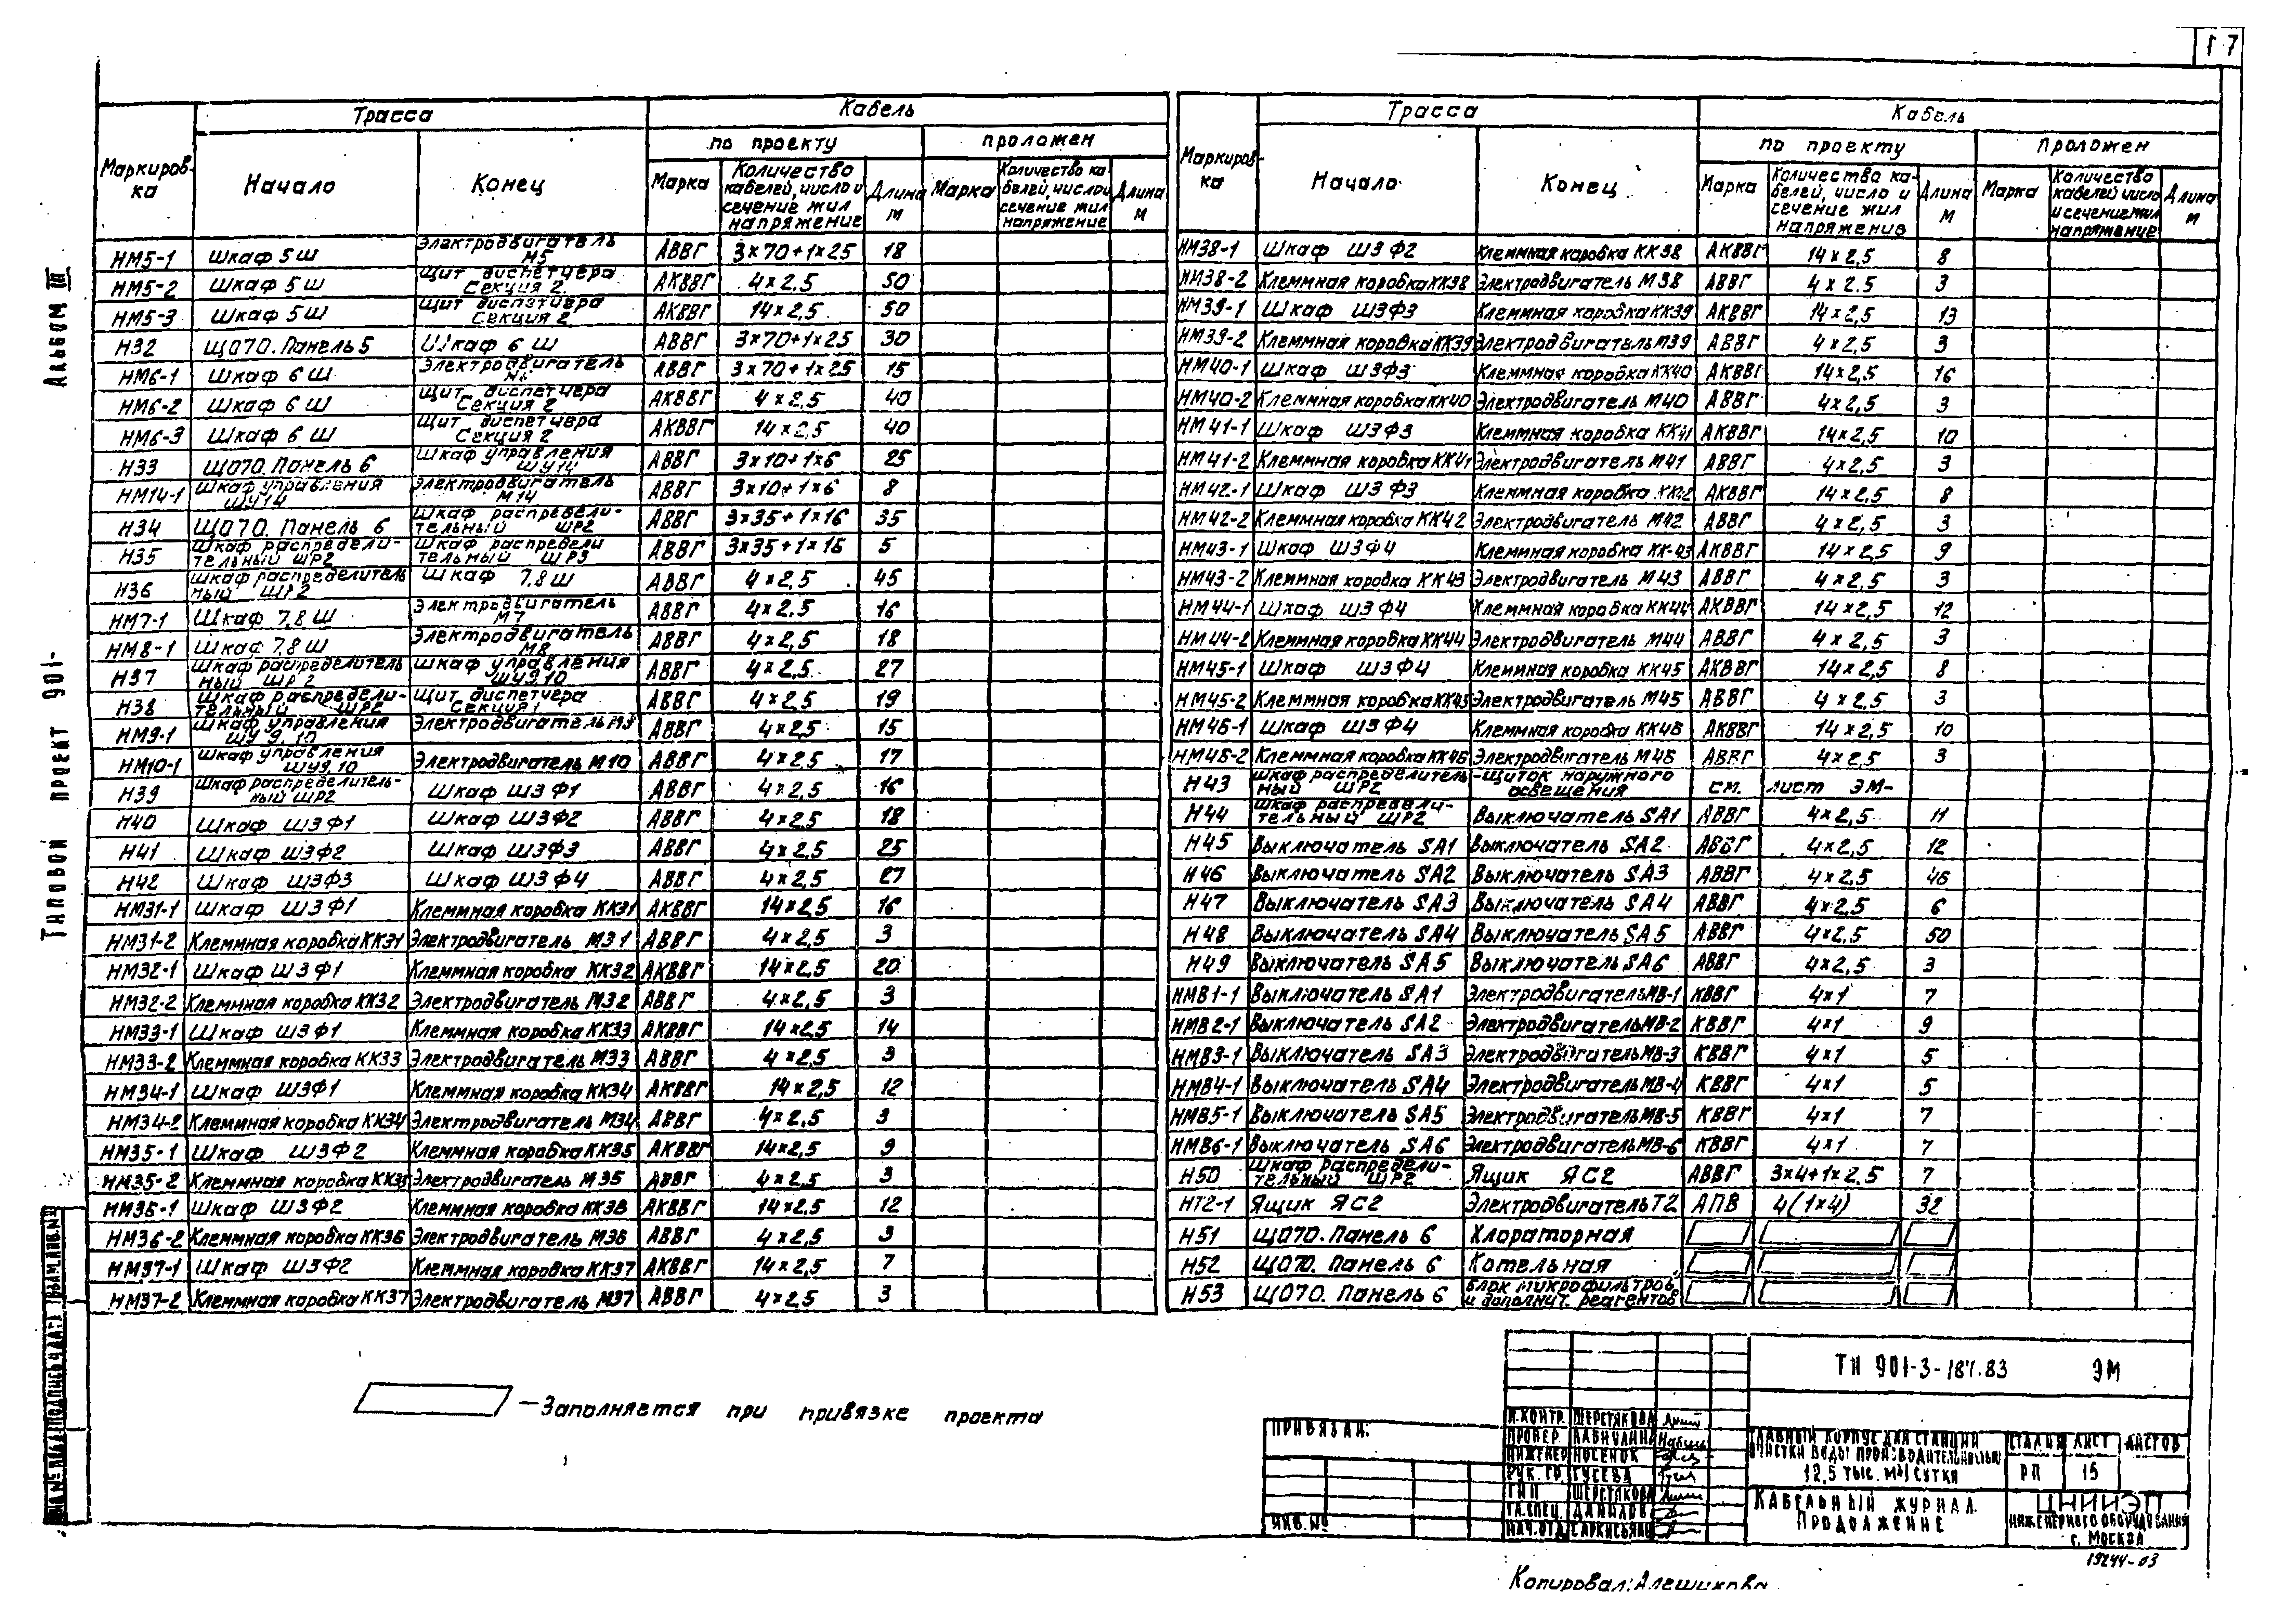 17
Альбом III
Типовой проект 901-
Маркировка
Трасса
Кабель
Начало
Конец
по проекту
проложен
Марка
Количество кабелей, число и сечение жил напряжение
Длина м
Марка
Количество кабелей, число и сечение жил напряжение
Длина м
НМ5-1 Шкаф 5Ш Электродвигатель М5 АВВГ 3×70+1×25 18
НМ5-2 Шкаф 5Ш Щит диспетчера Секция 2 АКВВГ 4×2,5 50
НМ5-3 Шкаф 5Ш Щит диспетчера Секция 2 АКВВГ 14×2,5 50
Н32 ЩО70. Панель 5 Шкаф 6Ш АВВГ 3×70+1×25 30
НМ6-1 Шкаф 6Ш Электродвигатель М6 АВВГ 3×70+1×25 15
НМ6-2 Шкаф 6Ш Щит диспетчера Секция 2 АКВВГ 4×2,5 40
НМ6-3 Шкаф 6Ш Щит диспетчера Секция 2 АКВВГ 14×2,5 40
Н33 ЩО70. Панель 6 Шкаф управления ШУ14 АВВГ 3×10+1×6 25
НМ14-1 Шкаф управления ШУ14 Электродвигатель М14 АВВГ 3×10+1×6 8
Н34 ЩО70. Панель 6 Шкаф распределительный ШР2 АВВГ 3×35+1×16 35
Н35 Шкаф распределительный ШР2 Шкаф распределительный ШР3 АВВГ 3×35+1×16 5
Н36 Шкаф распределительный ШР2 Шкаф 7,8Ш АВВГ 4×2,5 45
НМ7-1 Шкаф 7,8Ш Электродвигатель М7 АВВГ 4×2,5 16
НМ8-1 Шкаф 7,8Ш Электродвигатель М8 АВВГ 4×2,5 18
Н37 Шкаф распределительный ШР2 Шкаф управления ШУ9,10 АВВГ 4×2,5 27
Н38 Шкаф распределительный ШР2 Щит диспетчера Секция 1 АВВГ 4×2,5 19
НМ9-1 Шкаф управления ШУ9,10 Электродвигатель М9 АВВГ 4×2,5 15
НМ10-1 Шкаф управления ШУ9,10 Электродвигатель М10 АВВГ 4×2,5 17
Н39 Шкаф распределительный ШР2 Шкаф ШЗФ1 АВВГ 4×2,5 16
Н40 Шкаф ШЗФ1 Шкаф ШЗФ2 АВВГ 4×2,5 18
Н41 Шкаф ШЗФ2 Шкаф ШЗФ3 АВВГ 4×2,5 25
Н42 Шкаф ШЗФ3 Шкаф ШЗФ4 АВВГ 4×2,5 27
НМ31-1 Шкаф ШЗФ1 Клеммная коробка КК31 АКВВГ 14×2,5 16
НМ31-2 Клеммная коробка КК31 Электродвигатель М31 АВВГ 4×2,5 3
НМ32-1 Шкаф ШЗФ1 Клеммная коробка КК32 АКВВГ 14×2,5 20
НМ32-2 Клеммная коробка КК32 Электродвигатель М32 АВВГ 4×2,5 3
НМ33-1 Шкаф ШЗФ1 Клеммная коробка КК33 АКВВГ 14×2,5 14
НМ33-2 Клеммная коробка КК33 Электродвигатель М33 АВВГ 4×2,5 3
НМ34-1 Шкаф ШЗФ1 Клеммная коробка КК34 АКВВГ 14×2,5 12
НМ34-2 Клеммная коробка КК34 Электродвигатель М34 АВВГ 4×2,5 3
НМ35-1 Шкаф ШЗФ2 Клеммная коробка КК35 АКВВГ 14×2,5 9
НМ35-2 Клеммная коробка КК35 Электродвигатель М35 АВВГ 4×2,5 3
НМ36-1 Шкаф ШЗФ2 Клеммная коробка КК36 АКВВГ 14×2,5 12
НМ36-2 Клеммная коробка КК36 Электродвигатель М36 АВВГ 4×2,5 3
НМ37-1 Шкаф ШЗФ2 Клеммная коробка КК37 АКВВГ 14×2,5 7
НМ37-2 Клеммная коробка КК37 Электродвигатель М37 АВВГ 4×2,5 3
Маркировка
Трасса
Кабель
Начало
Конец
по проекту
проложен
Марка
Количество кабелей, число и сечение жил напряжение
Длина м
Марка
Количество кабелей число и сечение жил напряжение
Длина м
НМ38-1 Шкаф ШЗФ2 Клеммная коробка КК38 АКВВГ 14×2,5 8
НМ38-2 Клеммная коробка КК38 Электродвигатель М38 АВВГ 4×2.5 3
НМ39-1 Шкаф ШЗФ3 Клеммная коробка КК39 АКВВГ 14×2,5 13
НМ39-2 Клеммная коробка КК39 Электродвигатель М39 АВВГ 4×2,5 3
НМ40-1 Шкаф ШЗФ3 Клеммная коробка КК40 АКВВГ 14×2,5 16
НМ40-2 Клеммная коробка КК40 Электродвигатель М40 АВВГ 4×2,5 3
НМ41-1 Шкаф ШЗФ3 Клеммная коробка КК41 АКВВГ 14×2,5 10
НМ41-2 Клеммная коробка КК41 Электродвигатель М41 АВВГ 4×2,5 3
НМ42-1 Шкаф ШЗФ3 Клеммная коробка КК42 АКВВГ 14×2,5 8
НМ42-2 Клеммная коробка КК42 Электродвигатель М42 АВВГ 4×2,5 3
НМ43-1 Шкаф ШЗФ4 Клеммная коробка КК-43 АКВВГ 14×2,5 9
НМ43-2 Клеммная коробка КК43 Электродвигатель М43 АВВГ 4×2,5 3
НМ44-1 Шкаф ШЗФ4 Клеммная коробка КК44 АКВВГ 14×2,5 12
НМ44-2 Клеммная коробка КК44 Электродвигатель М44 АВВГ 4×2,5 3
НМ45-1 Шкаф ШЗФ4 Клеммная коробка КК45 АКВВГ 14×2,5 8
НМ45-2 Клеммная коробка КК45 Электродвигатель М45 АВВГ 4×2,5 3
НМ46-1 Шкаф ШЗФ4 Клеммная коробка КК46 АКВВГ 14×2,5 10
НМ46-2 Клеммная коробка КК46 Электродвигатель М46 АВВГ 4×2,5 3
Н43 Шкаф распределительный ШР2 Щиток наружного освещения см. лист ЭМ-
Н44 Шкаф распределительный ШР2 Выключатель SA1 АВВГ 4×2,5 11
Н45 Выключатель SA1 Выключатель SA2 АВВГ 4×2,5 12
Н46 Выключатель SA2 Выключатель SA3 АВВГ 4×2,5 46
Н47 Выключатель SA3 Выключатель SA4 АВВГ 4×2,5 6
Н48 Выключатель SA4 Выключатель SA5 АВВГ 4×2,5 50
Н49 Выключатель SA5 Выключатель SA6 АВВГ 4×2,5 3
НМВ1-1 Выключатель SA1 Электродвигатель МВ-1 КВВГ 4×1 7
НМВ2-1 Выключатель SA2 Электродвигатель МВ-2 КВВГ 4×1 9
НМВ3-1 Выключатель SA3 Электродвигатель МВ-3 КВВГ 4×1 5
НМВ4-1 Выключатель SA4 Электродвигатель МВ-4 КВВГ 4×1 5
НМВ5-1 Выключатель SA5 Электродвигатель МВ-5 КВВГ 4×1 7
НМВ6-1 Выключатель SA6 Электродвигатель МВ-6 КВВГ 4×1 7
Н50 Шкаф распределительный ШР2 Ящик ЯС2 АВВГ 3×4+1×2.5 7
НТ2-1 Ящик ЯС2 Электродвигатель Т2 АПВ 4(1×4) 32
Н51 ЩО70. Панель 6 Хлораторная
Н52 ЩО70. Панель 6 Котельная
Н53 ЩО70. Панель 6 Блок микрофильтров и дополнит. реагентов
— Заполняется при привязке проекта
ТП 901-3-187.83 ЭМ
Привязан:
Инв. №
Н.контр. Шерстякова
Провер.
Инженер Носенок
Рук. гр. Гусева
ГИП Шерстякова
Гл.спец. Данилов
Нач.отд. Саркисьянц
Главный корпус для станции
очистки воды производительностью
12,5 тыс. м³/сутки
Стадия Лист Листов
РП 15
Кабельный журнал.
Продолжение
ЦНИИЭП
инженерного оборудования
г. Москва
19244-03
Копировал: Алешихова
Инв.№ подл. Подпись и дата Взам.инв.№